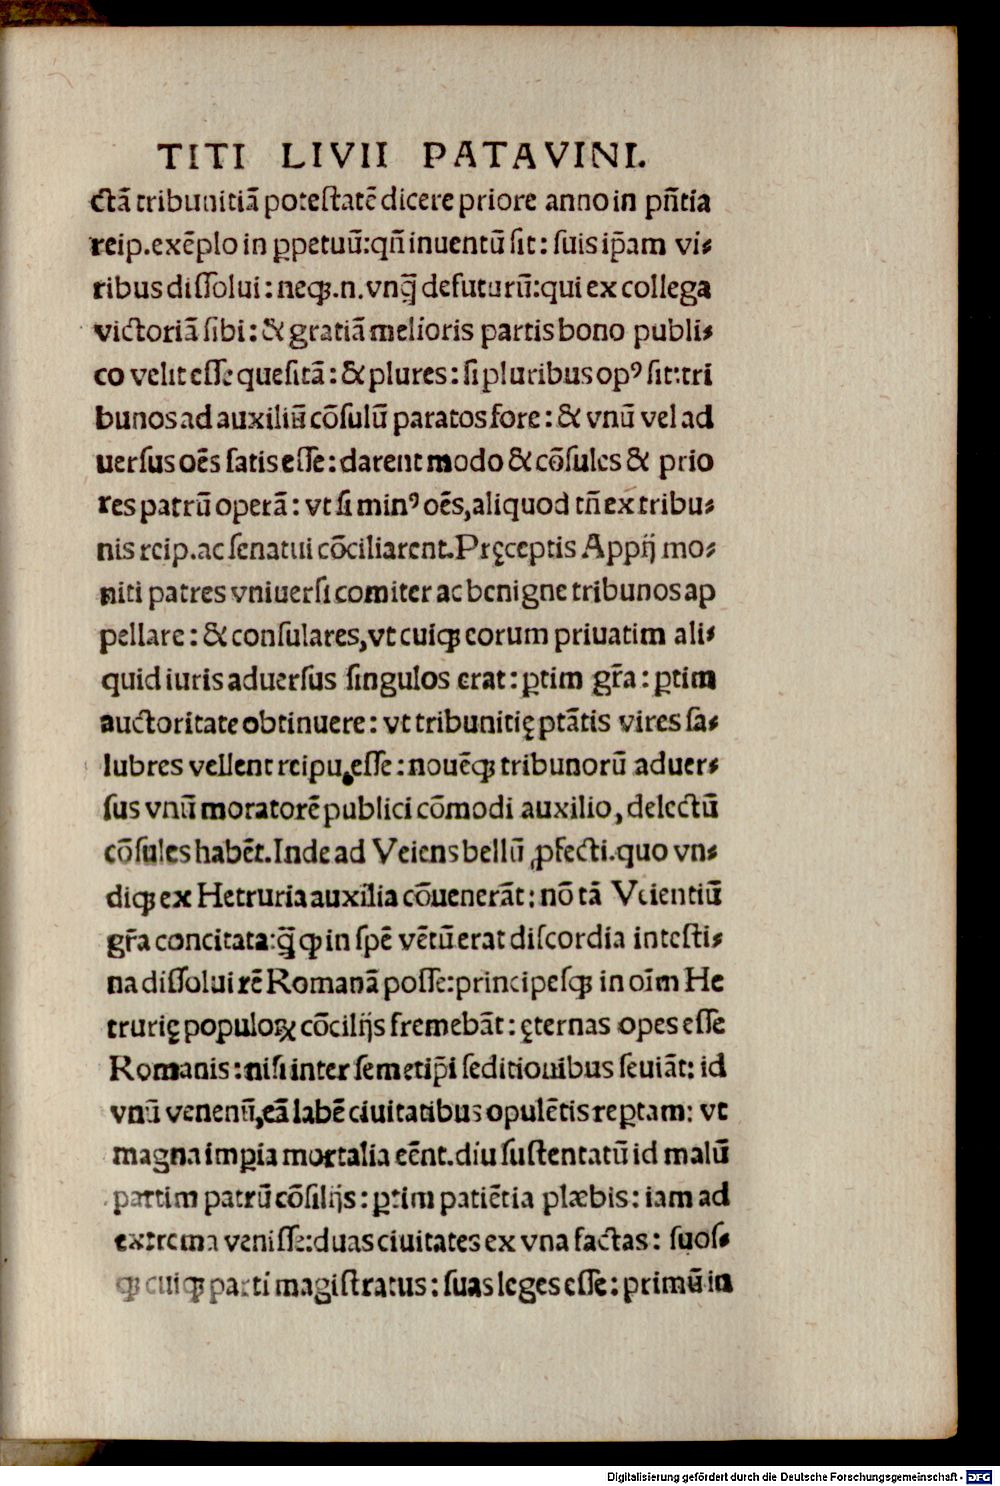 TITI LIVII PATAVINI.
ctā tribunitiā potestatē dicere priore anno in pñtia
reip.exēplo in ꝑpetuū:qñ inuentū sit: suis ip̄am vi⸗
ribus dissolui: neqꝫ.n.vnq̄ defuturū:qui ex collega
victoriā sibi: & gratiā melioris partis bono publi⸗
co velit esse quesitā: & plures: si pluribus opꝰ sit:tri
bunos ad auxiliū cōsulū paratos fore: & vnū vel ad
uersus oēs satis esse: darent modo & cōsules & prio
res patrū operā: vt si minꝰ oēs,aliquod tñ ex tribu⸗
nis reip.ac senatui cōciliarent.Pręceptis Appij mo⸗
niti patres vniuersi comiter ac benigne tribunos ap
pellare: & consulares,vt cuiqꝫ eorum priuatim ali⸗
quid iuris aduersus singulos erat: ꝑtim gr̄a: ꝑtim
auctoritate obtinuere: vt tribunitię ptātis vires sa⸗
lubres vellent reipu.esse: nouēqꝫ tribunorū aduer⸗
sus vnū moratorē publici cōmodi auxilio, delectū
cōsules habēt.Inde ad Veiens bellū ꝓfecti.quo vn⸗
diqꝫ ex Hetruria auxilia cōuenerāt: nō tā Veientiū
gr̄a concitata:q̄ ꝙ in spē vētū erat discordia intesti⸗
na dissolui rē Romanā posse:principesqꝫ in oīm He
trurię populoꝝ cōcilijs fremebāt: ęternas opes esse
Romanis: nisi inter semetip̄i seditionibus seuiāt: id
vnū venenū,eā labē ciuitatibus opulētis reꝑtam: vt
magna imꝑia mortalia eēnt.diu sustentatū id malū
partim patrū cōsilijs: ꝑtim patiētia plæbis: iam ad
extrema venisse:duas ciuitates ex vna factas: suos⸗
qꝫ cuiqꝫ parti magistratus: suas leges esse: primū in
Digitalisierung gefördert durch die Deutsche Forschungsgemeinschaft - DFG